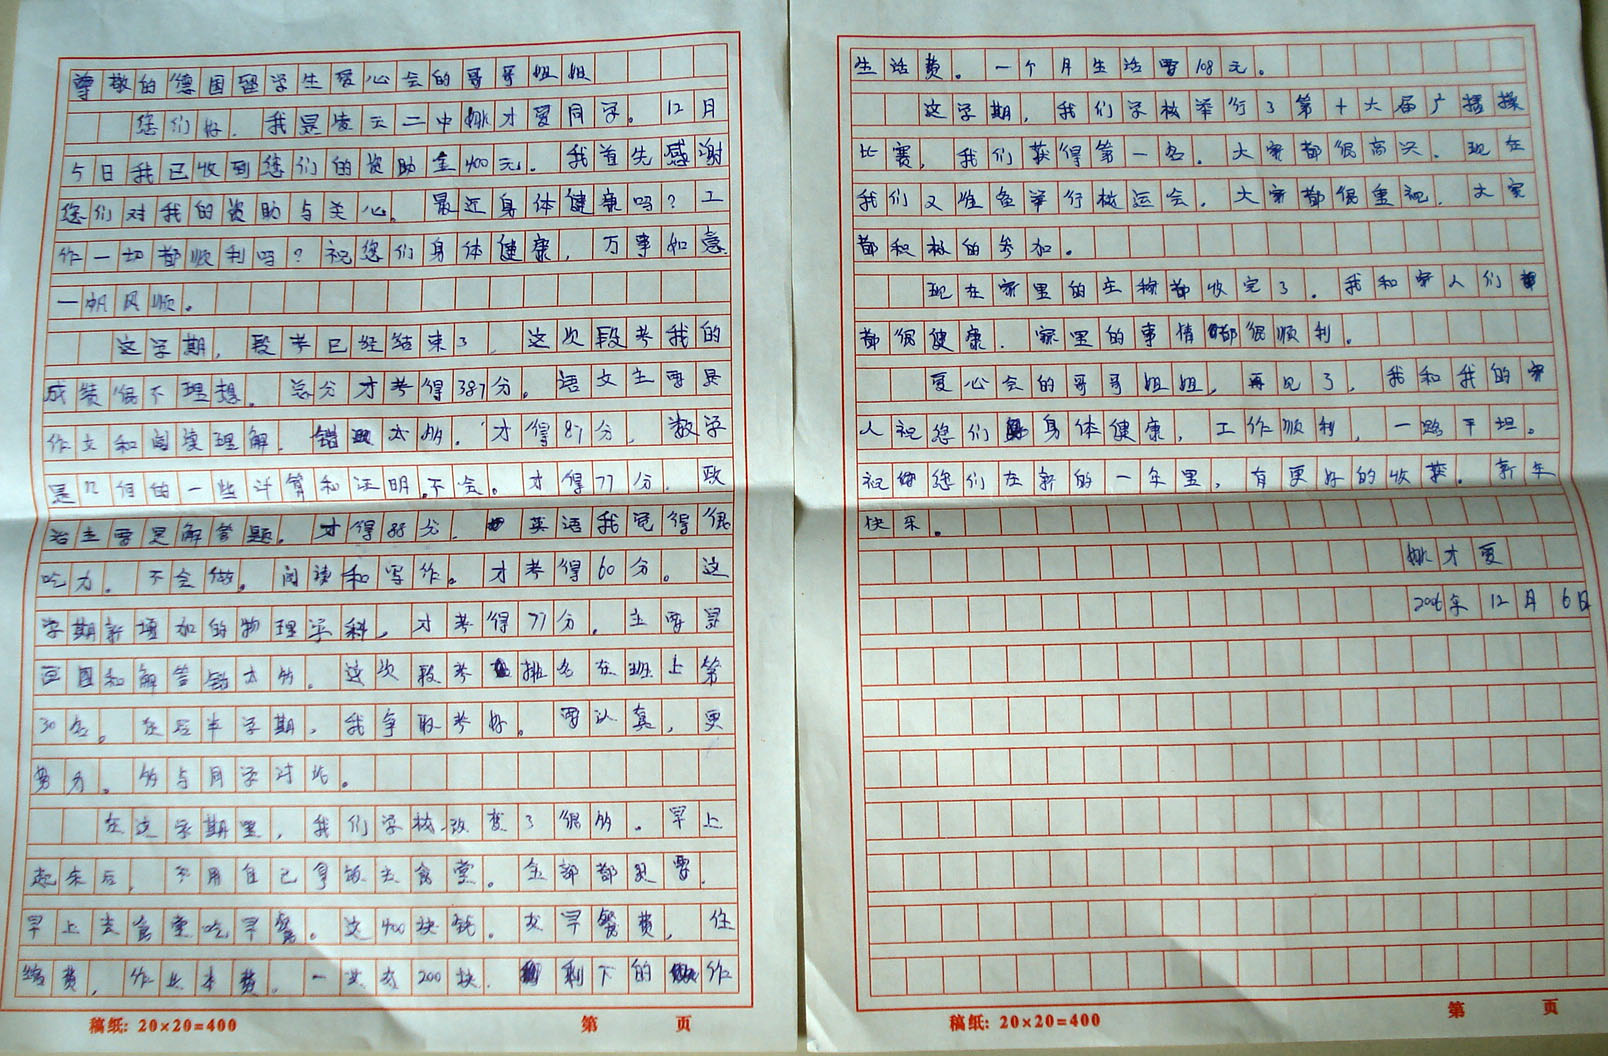 尊敬的德国留学生爱心会的哥哥姐姐
您们好，我是凌云二中姚才爱同学。12月
5日我已收到您们的资助金400元。我首先感谢
您们对我的资助与关心。最近身体健康吗？工
作一切都顺利吗？祝您们身体健康，万事如意
一帆风顺。
这学期，段考已经结束了，这次段考我的
成绩很不理想。总分才考得387分。语文主要是
作文和阅读理解，错太多，才得87分，数学
是几何的一些计算和证明不会。才得77分，政
治主要是解答题。才得88分，英语我觉得很
吃力。不会做。阅读和写作。才考得60分。这
学期新增加的物理学科，才考得77分。主要是
画图和解答错太多。这次段考排名在班上第
30名。在后半学期，我争取考好。要认真，更
努力。多与同学讨论。
在这学期里，我们学校改变了很多。早上
起来后，不用自己拿饭去食堂。全部都要
早上去食堂吃早餐。这400块钱。交早餐费，住
宿费，作业本费。一共交200块，剩下的作
生活费。一个月生活需108元。
这学期，我们学校举行了第十六届广播操
比赛，我们获得第一名。大家都很高兴，现在
我们又准备举行校运会。大家都很重视，大家
都积极的参加。
现在家里的庄稼都收完了。我和家人们
都很健康，家里的事情都很顺利。
爱心会的哥哥姐姐，再见了，我和我的家
人祝您们身体健康，工作顺利，一路平坦。
祝您们在新的一年里，有更好的收获。新年
快乐。
姚才爱
2006年12月6日
稿纸: 20×20=400 第 页
稿纸: 20×20=400 第 页